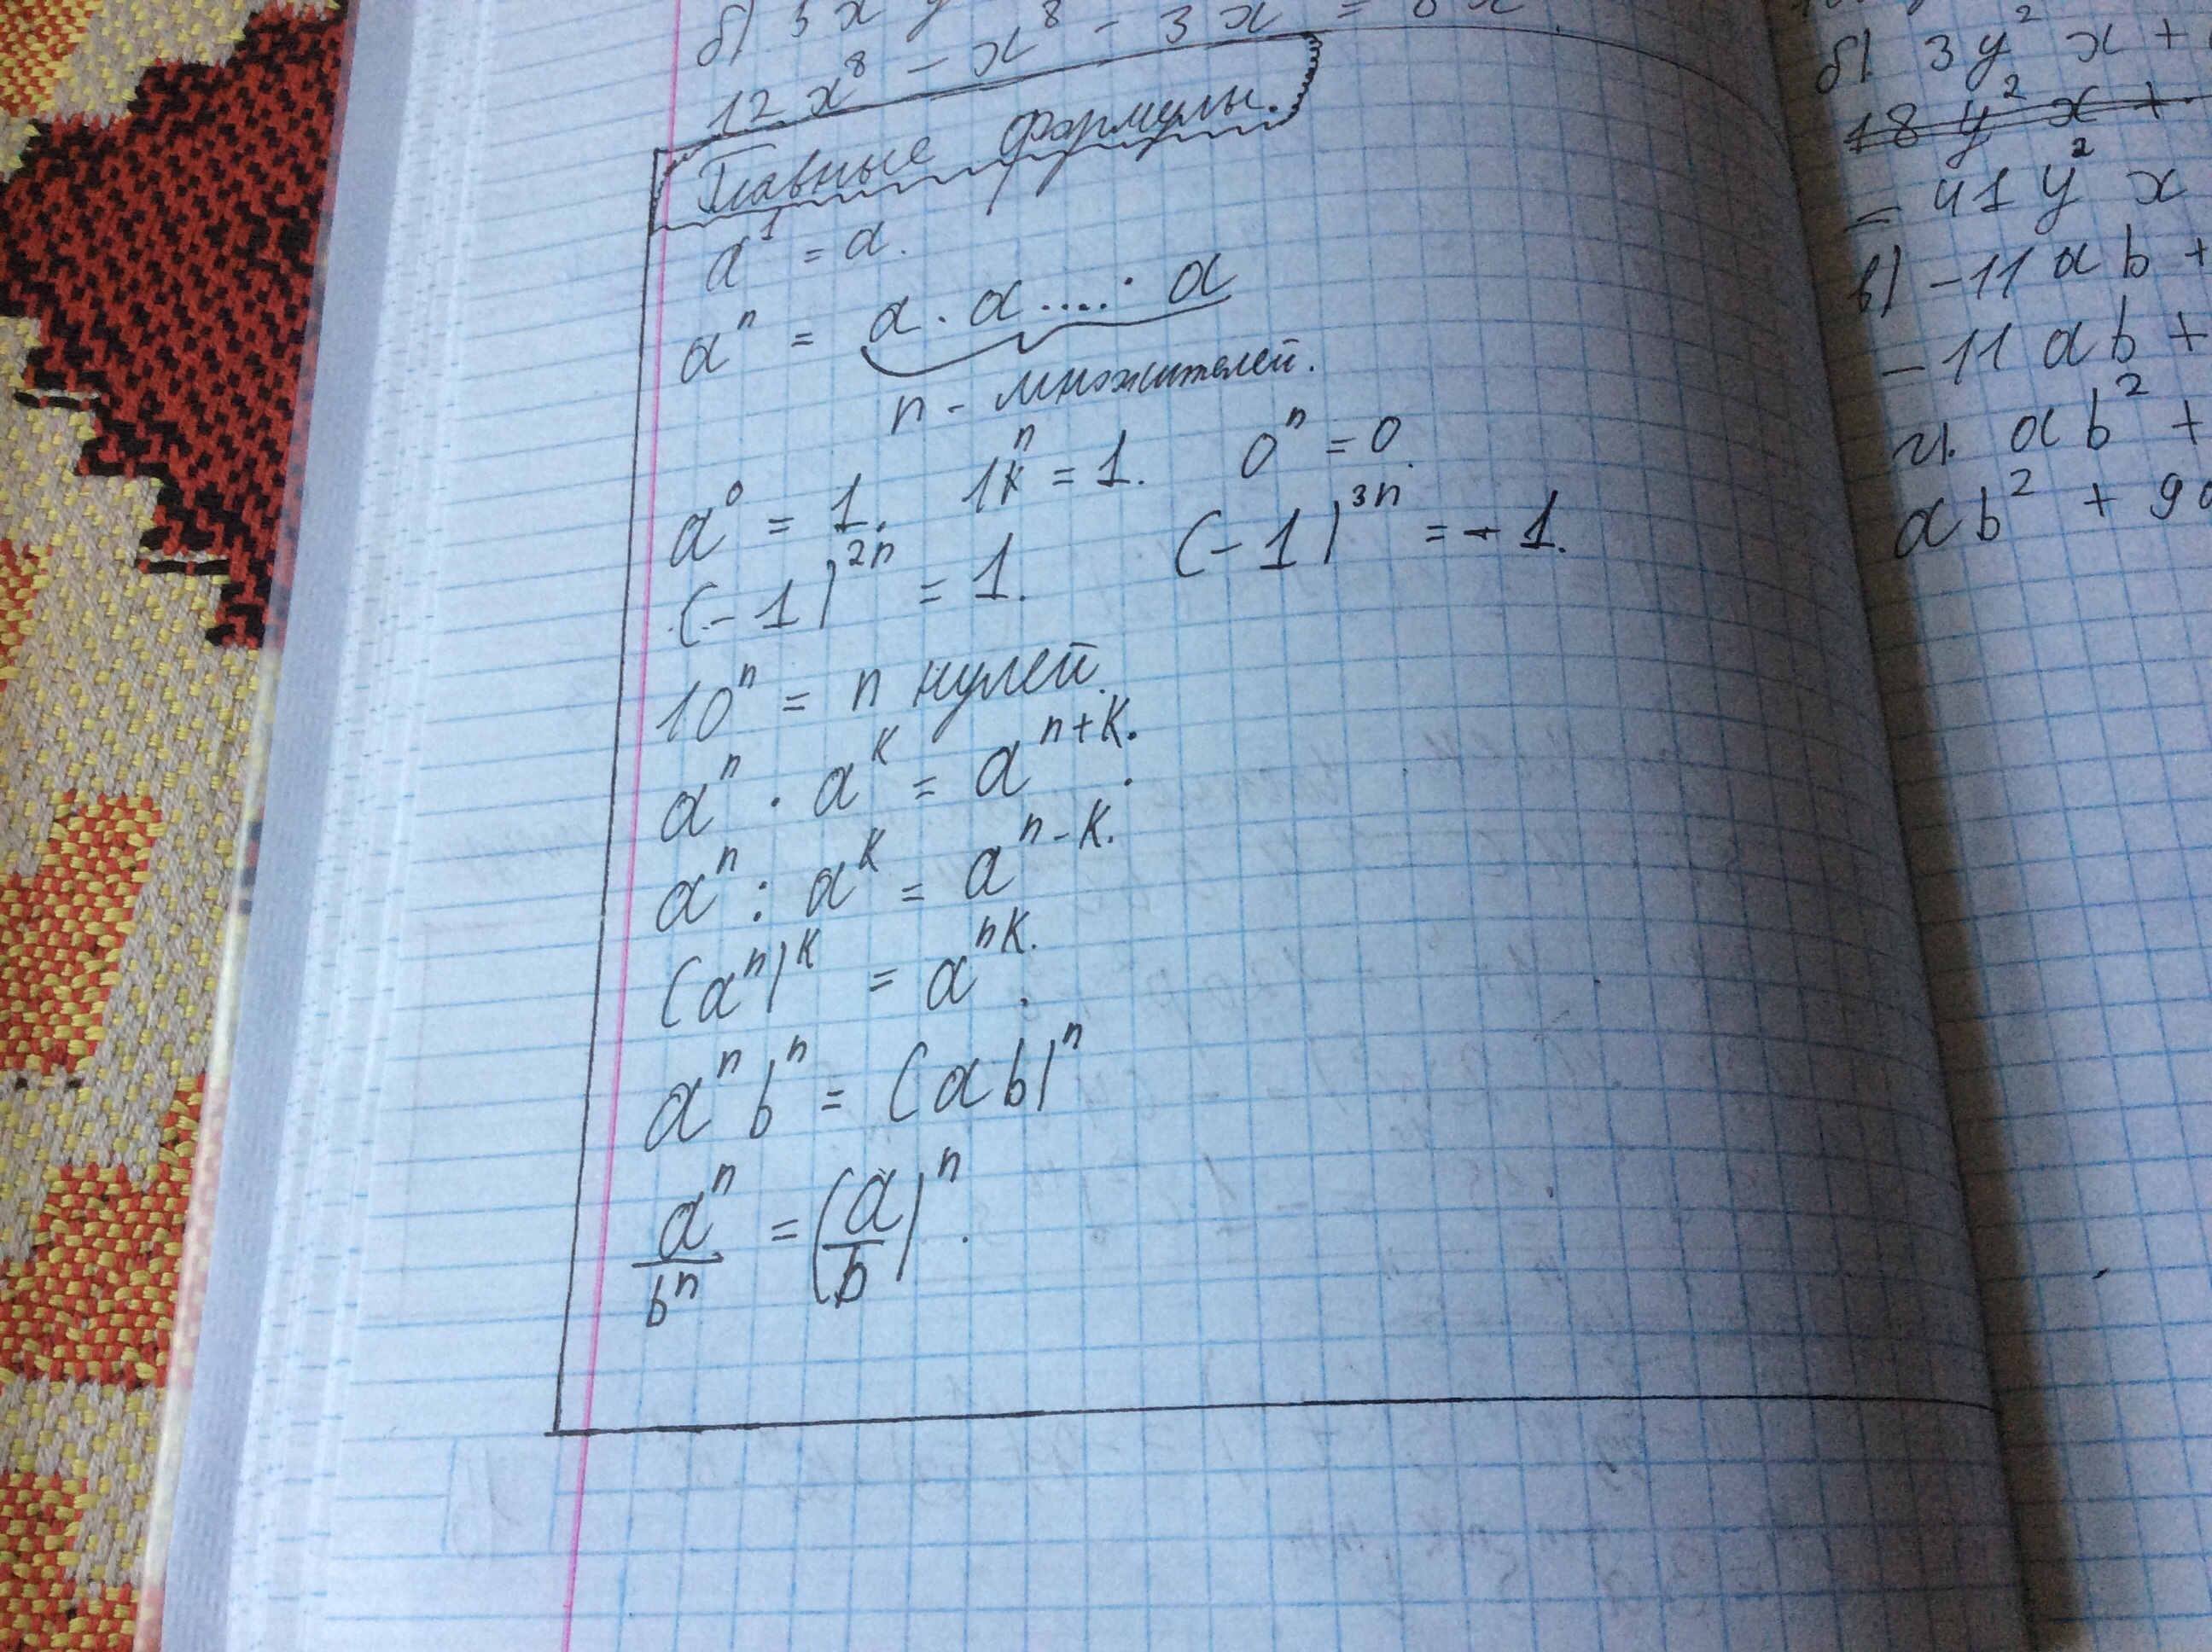 б) 3x y
12x⁸ - x⁸ - 3x = 8x
Главные формулы.
a¹ = a.
aⁿ = a · a ....· a
n - множителей.
a⁰ = 1. 1ⁿ = 1. 0ⁿ = 0.
(-1)²ⁿ = 1. (-1)³ⁿ = -1.
10ⁿ = n нулей.
aⁿ · aᴷ = aⁿ⁺ᴷ.
aⁿ : aᴷ = aⁿ⁻ᴷ.
(aⁿ)ᴷ = aⁿᴷ.
aⁿbⁿ = (ab)ⁿ
aⁿ/bⁿ = (a/b)ⁿ.
б) 3y²x +
18y²x +
= 41y²x
в) -11ab +
-11ab +
г). ab² +
ab² + 9a